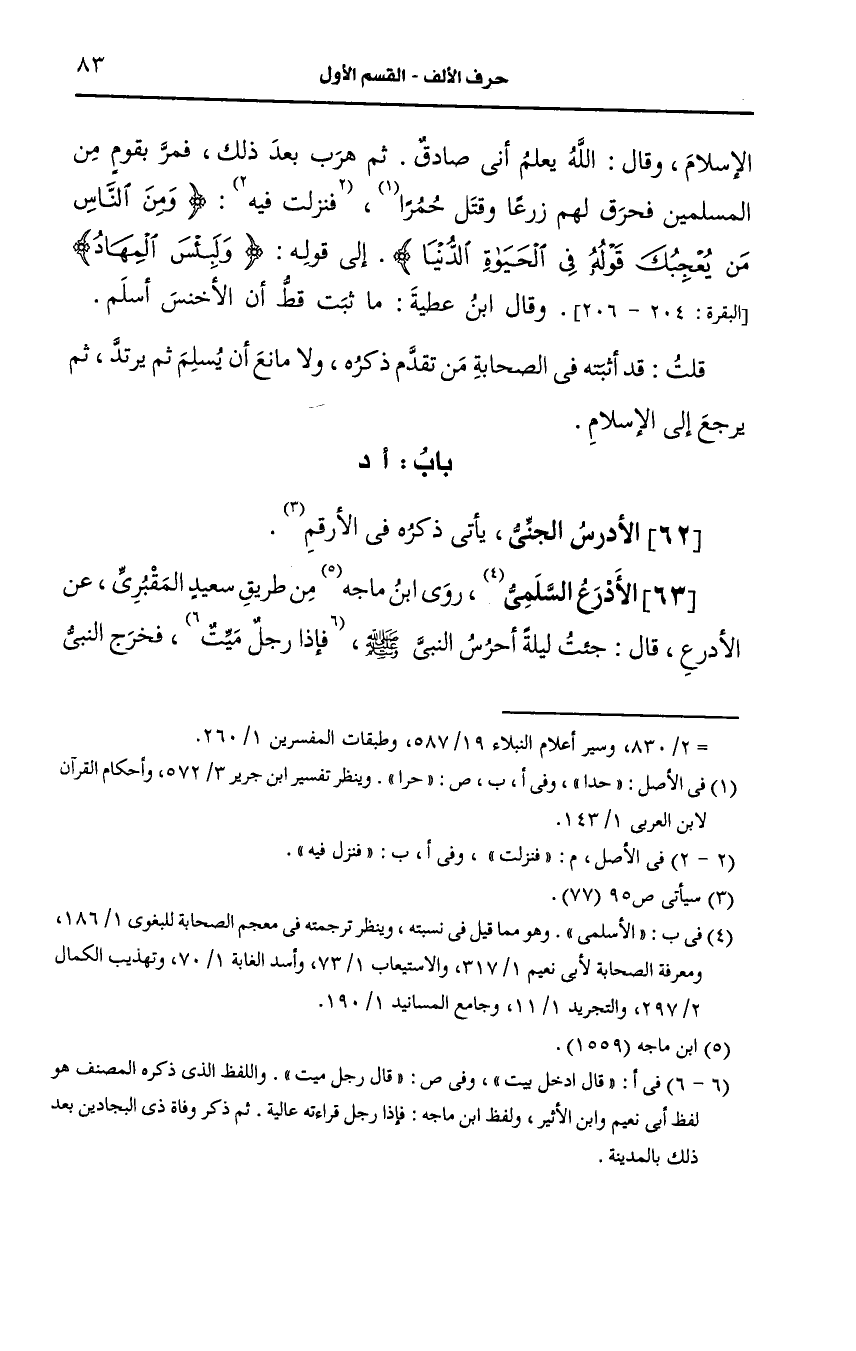 حرف الألف - القسم الأول ٨٣
الإسلامَ، وقال : اللَّهُ يعلمُ أنى صادقٌ . ثم هرَب بعدَ ذلك، فمرَّ بقومٍ مِن
المسلمين فحرَق لهم زرعًا وقتَل حُمُرًا(١)، (٢فنزلت فيه٢) : ﴿ وَمِنَ ٱلنَّاسِ
مَن يُعْجِبُكَ قَوْلُهُ فِى ٱلْحَيَوٰةِ ٱلدُّنْيَا ﴾ . إلى قولِه : ﴿ وَلَبِئْسَ ٱلْمِهَادُ﴾
[البقرة : ٢٠٤ - ٢٠٦] . وقال ابنُ عطيةَ : ما ثبَت قطُّ أن الأخنسَ أسلَم .
قلتُ : قد أثبَته فى الصحابةِ مَن تقدَّم ذكرُه، ولا مانعَ أن يُسلِمَ ثم يرتدَّ، ثم
يرجعَ إلى الإسلامِ .
بابُ : أ د
[٦٢] الأدرسُ الجنِّىُّ، يأتى ذكرُه فى الأرقمِ(٣) .
[٦٣] الأَدْرَعُ السَّلَمِىُّ(٤)، روَى ابنُ ماجه(٥) مِن طريقِ سعيدٍ المَقْبُرِىِّ، عن
الأدرعِ، قال : جئتُ ليلةً أحرُسُ النبىَّ ﷺ، (٦فإذا رجلٌ مَيِّتٌ٦)، فخرَج النبىُّ
= ٢/ ٨٣٠، وسير أعلام النبلاء ١٩/ ٥٨٧، وطبقات المفسرين ١/ ٢٦٠.
(١) فى الأصل : «حدا»، وفى أ، ب، ص : «حرا» . وينظر تفسير ابن جرير ٣/ ٥٧٢، وأحكام القرآن
لابن العربى ١/ ١٤٣.
(٢ - ٢) فى الأصل، م : «فنزلت» ، وفى أ، ب : «فنزل فيه» .
(٣) سيأتى ص٩٥ (٧٧) .
(٤) فى ب : «الأسلمى» . وهو مما قيل فى نسبته، وينظر ترجمته فى معجم الصحابة للبغوى ١/ ١٨٦،
ومعرفة الصحابة لأبى نعيم ١/ ٣١٧، والاستيعاب ١/ ٧٣، وأسد الغابة ١/ ٧٠، وتهذيب الكمال
٢/ ٢٩٧، والتجريد ١/ ١١، وجامع المسانيد ١/ ١٩٠.
(٥) ابن ماجه (١٥٥٩) .
(٦ - ٦) فى أ : «قال ادخل بيت»، وفى ص : «قال رجل ميت» . واللفظ الذى ذكره المصنف هو
لفظ أبى نعيم وابن الأثير، ولفظ ابن ماجه : فإذا رجل قراءته عالية . ثم ذكر وفاة ذى البجادين بعد
ذلك بالمدينة .